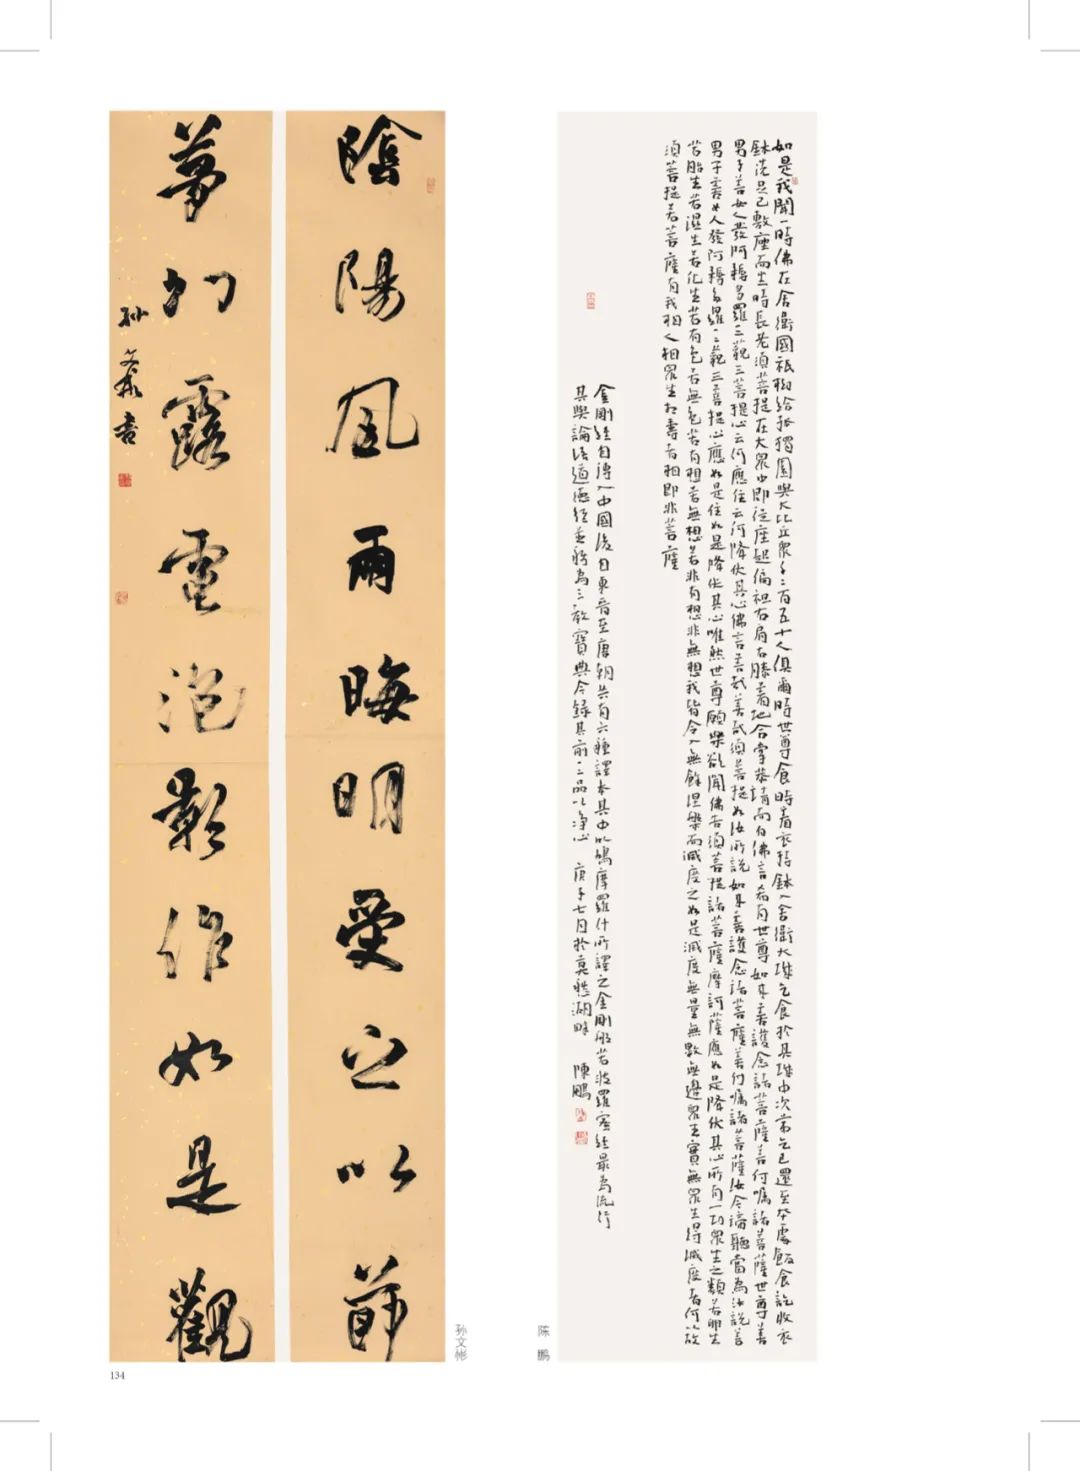 陰陽風雨晦明受之以節
夢幻露電泡影作如是觀
孫文彬書
孙文彬
134
如是我聞一時佛在舍衛國祇樹給孤獨園與大比丘眾千二百五十人俱爾時世尊食時着衣持鉢入舍衛大城乞食於其城中次第乞已還至本處飯食訖收衣
鉢洗足已敷座而坐時長老須菩提在大眾中即從座起偏袒右肩右膝着地合掌恭請而白佛言希有世尊如來善護念諸菩薩善付囑諸菩薩世尊善
男子善女人發阿耨多羅三藐三菩提心云何應住云何降伏其心佛言善哉善哉須菩提如汝所說如來善護念諸菩薩善付囑諸菩薩汝今諦聽當為汝說善
男子善女人發阿耨多羅三藐三菩提心應如是住如是降伏其心唯然世尊願樂欲聞佛告須菩提諸菩薩摩訶薩應如是降伏其心所有一切眾生之類若卵生
若胎生若濕生若化生若有色若無色若有想若無想若非有想非無想我皆令入無餘涅槃而滅度之如是滅度無量無數無邊眾生實無眾生得滅度者何以故
須菩提若菩薩有我相人相眾生相壽者相即非菩薩
金剛經自傳入中國後自東晉至唐朝共有六種譯本其中以鳩摩羅什所譯之金剛般若波羅蜜經最為流行
其與論語道德經並稱為三教寶典今錄其前二品以淨心 庚子七月於莫愁湖畔 陳鵬
陈鹏